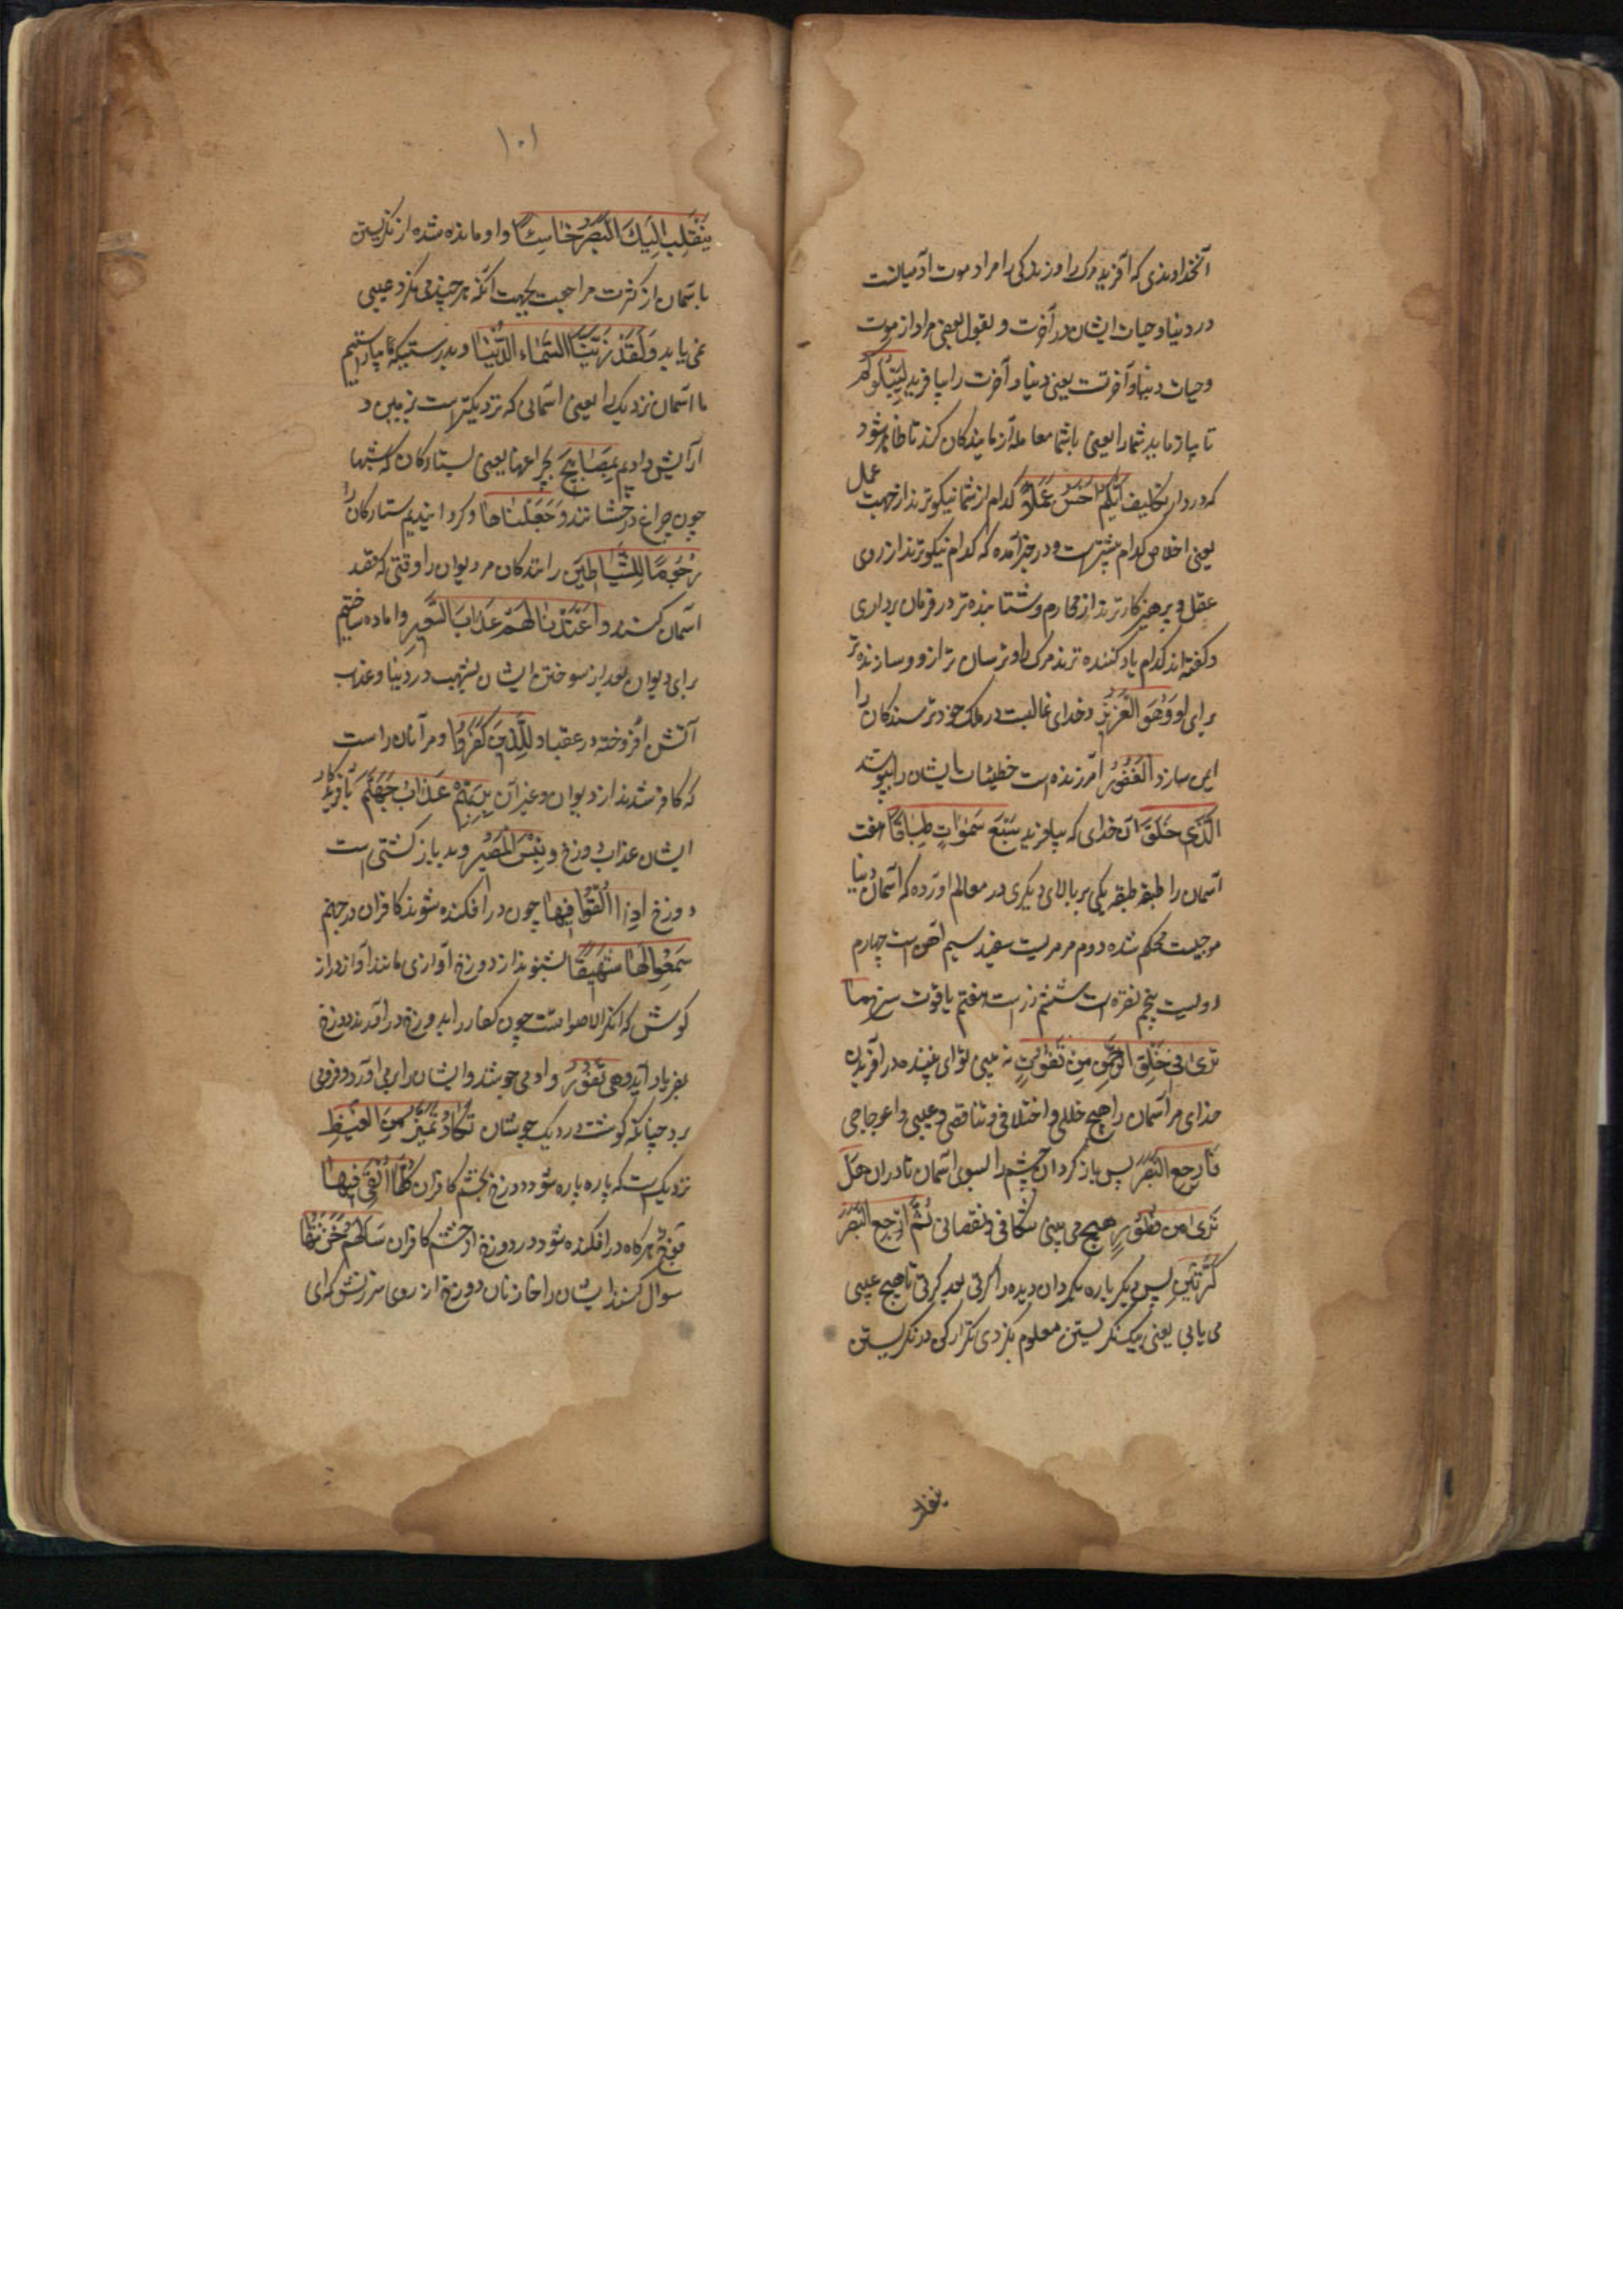 آنخداوندی که آفرید مرک را و زندکی را مراد موت آدمیانست
در دنیا و حیات ایشان در آخرت و بقول بعضی مراد از موت
و حیات دنیا و آخرتست یعنی دنیا و آخرت را بیافرید لِیَبْلُوَکُم
تا بیازماید شما را یعنی باشما معامله آزمایندکان کند تا ظاهر شود
که در دار تکلیف اَیُّکُم اَحْسَنُ عَمَلًا کدام از شما نیکوترند از جهت عمل
یعنی اخلاص کدام بیشترست و در خبر آمده که کدام نیکوترند از روی
عقل و پرهیزکارترند از محارم و شتابنده تر در فرمان برداری
و کفته اند کدام یاد کننده ترند مرک را و ترسان تر ازو و سازنده تر
برای او وَهُوَ الْعَزِیزُ و خدای غالبست در ملک خود ترسندکان را
ایمن سازد الْغَفُورُ آمرزنده است خطیئات ایشان را بپوشد
الَّذِی خَلَقَ آن خدای که بیافرید سَبْعَ سَمٰوَاتٍ طِبَاقًا هفت
آسمان را طبقه طبقه یکی بر بالای دیکری در معالم آورده که آسمان دنیا
موجیست محکم شده دوم مرمریست سفید سیم آهن است چهارم
رویست پنجم نقره است ششم زر است هفتم یاقوت سرخ مَا
تَرٰی فِی خَلْقِ الرَّحْمٰنِ مِنْ تَفٰوُتٍ نه بینی تو ای بیننده در آفریدن
خدای مر آسمان را هیچ خللی و اختلافی و تناقضی و عیبی و اعوجاجی
فَارْجِعِ الْبَصَرَ پس باز کردان چشم را بسوی آسمان تا دران هَلْ
تَرٰی مِن فُطُورٍ هیچ می بینی شکافی و نقصانی ثُمَّ ارْجِعِ الْبَصَرَ
کَرَّتَیْنِ پس دیکر باره بکردان دیده را کرتی بعد کرتی تا هیچ عیبی
می یابی یعنی بیک نکریستن معلوم نکردی تکرار کن در نکریستن
ینقلب
۱۰۱
یَنْقَلِبْ اِلَیْکَ الْبَصَرُ خَاسِئًا و او مانده شده از نکریستن
باسمان از کثرت مراجعت بجهت آنکه هر چند می نکرد عیبی
نمی یابد وَلَقَدْ زَیَّنَّا السَّمَاءَ الدُّنْیَا و بدرستیکه بیاراستیم
ما آسمان نزدیک را یعنی آسمانی که نزدیکترست بزمین و
آرایش دادیم بِمَصَابِیحَ بچراغها یعنی بستارکان که شبها
چون چراغ درخشانند وَجَعَلْنَاهَا و کردانیدیم ستارکان را
رُجُومًا لِلشَّیَاطِینَ رانندکان مر دیوان را وقتی که قصد
آسمان کنند وَاَعْتَدْنَا لَهُمْ عَذَابَ السَّعِیرِ و اماده ساختیم
برای دیوان بعد از سوختن ایشان بشهب در دنیا و عذاب
آتش افروخته در عقبا وَلِلَّذِینَ کَفَرُوا و مر آنان راست
که کافر شدند از دیوان و غیر آن بِرَبِّهِمْ عَذَابُ جَهَنَّمَ بآفریدکار
ایشان عذاب دوزخ وَبِئْسَ الْمَصِیرُ و بد باز کشتی است
دوزخ اِذَا اُلْقُوا فِیهَا چون در افکنده شوند کافران در جهنم
سَمِعُوا لَهَا شَهِیقًا بشنوند از دوزخ آوازی مانند آواز دراز
کوش که انکر الاصواتست چون کفار را بدوزخ درآرند دوزخ
بفریاد آید وَهِیَ تَفُورُ و او می جوشد و ایشان را بر می آورد و فرو می
برد چنانکه کوشت در دیک جوشان تَکَادُ تَمَیَّزُ مِنَ الْغَیْظِ
نزدیکست که پاره پاره شود دوزخ بخشم کافران کُلَّمَا اُلْقِیَ فِیهَا
فَوْجٌ هرکاه در افکنده شود در دوزخ از خشم کافران سَاَلَهُمْ خَزَنَتُهَا
سوال کنند ایشان را خازنان دوزخ از روی سرزنش که ای